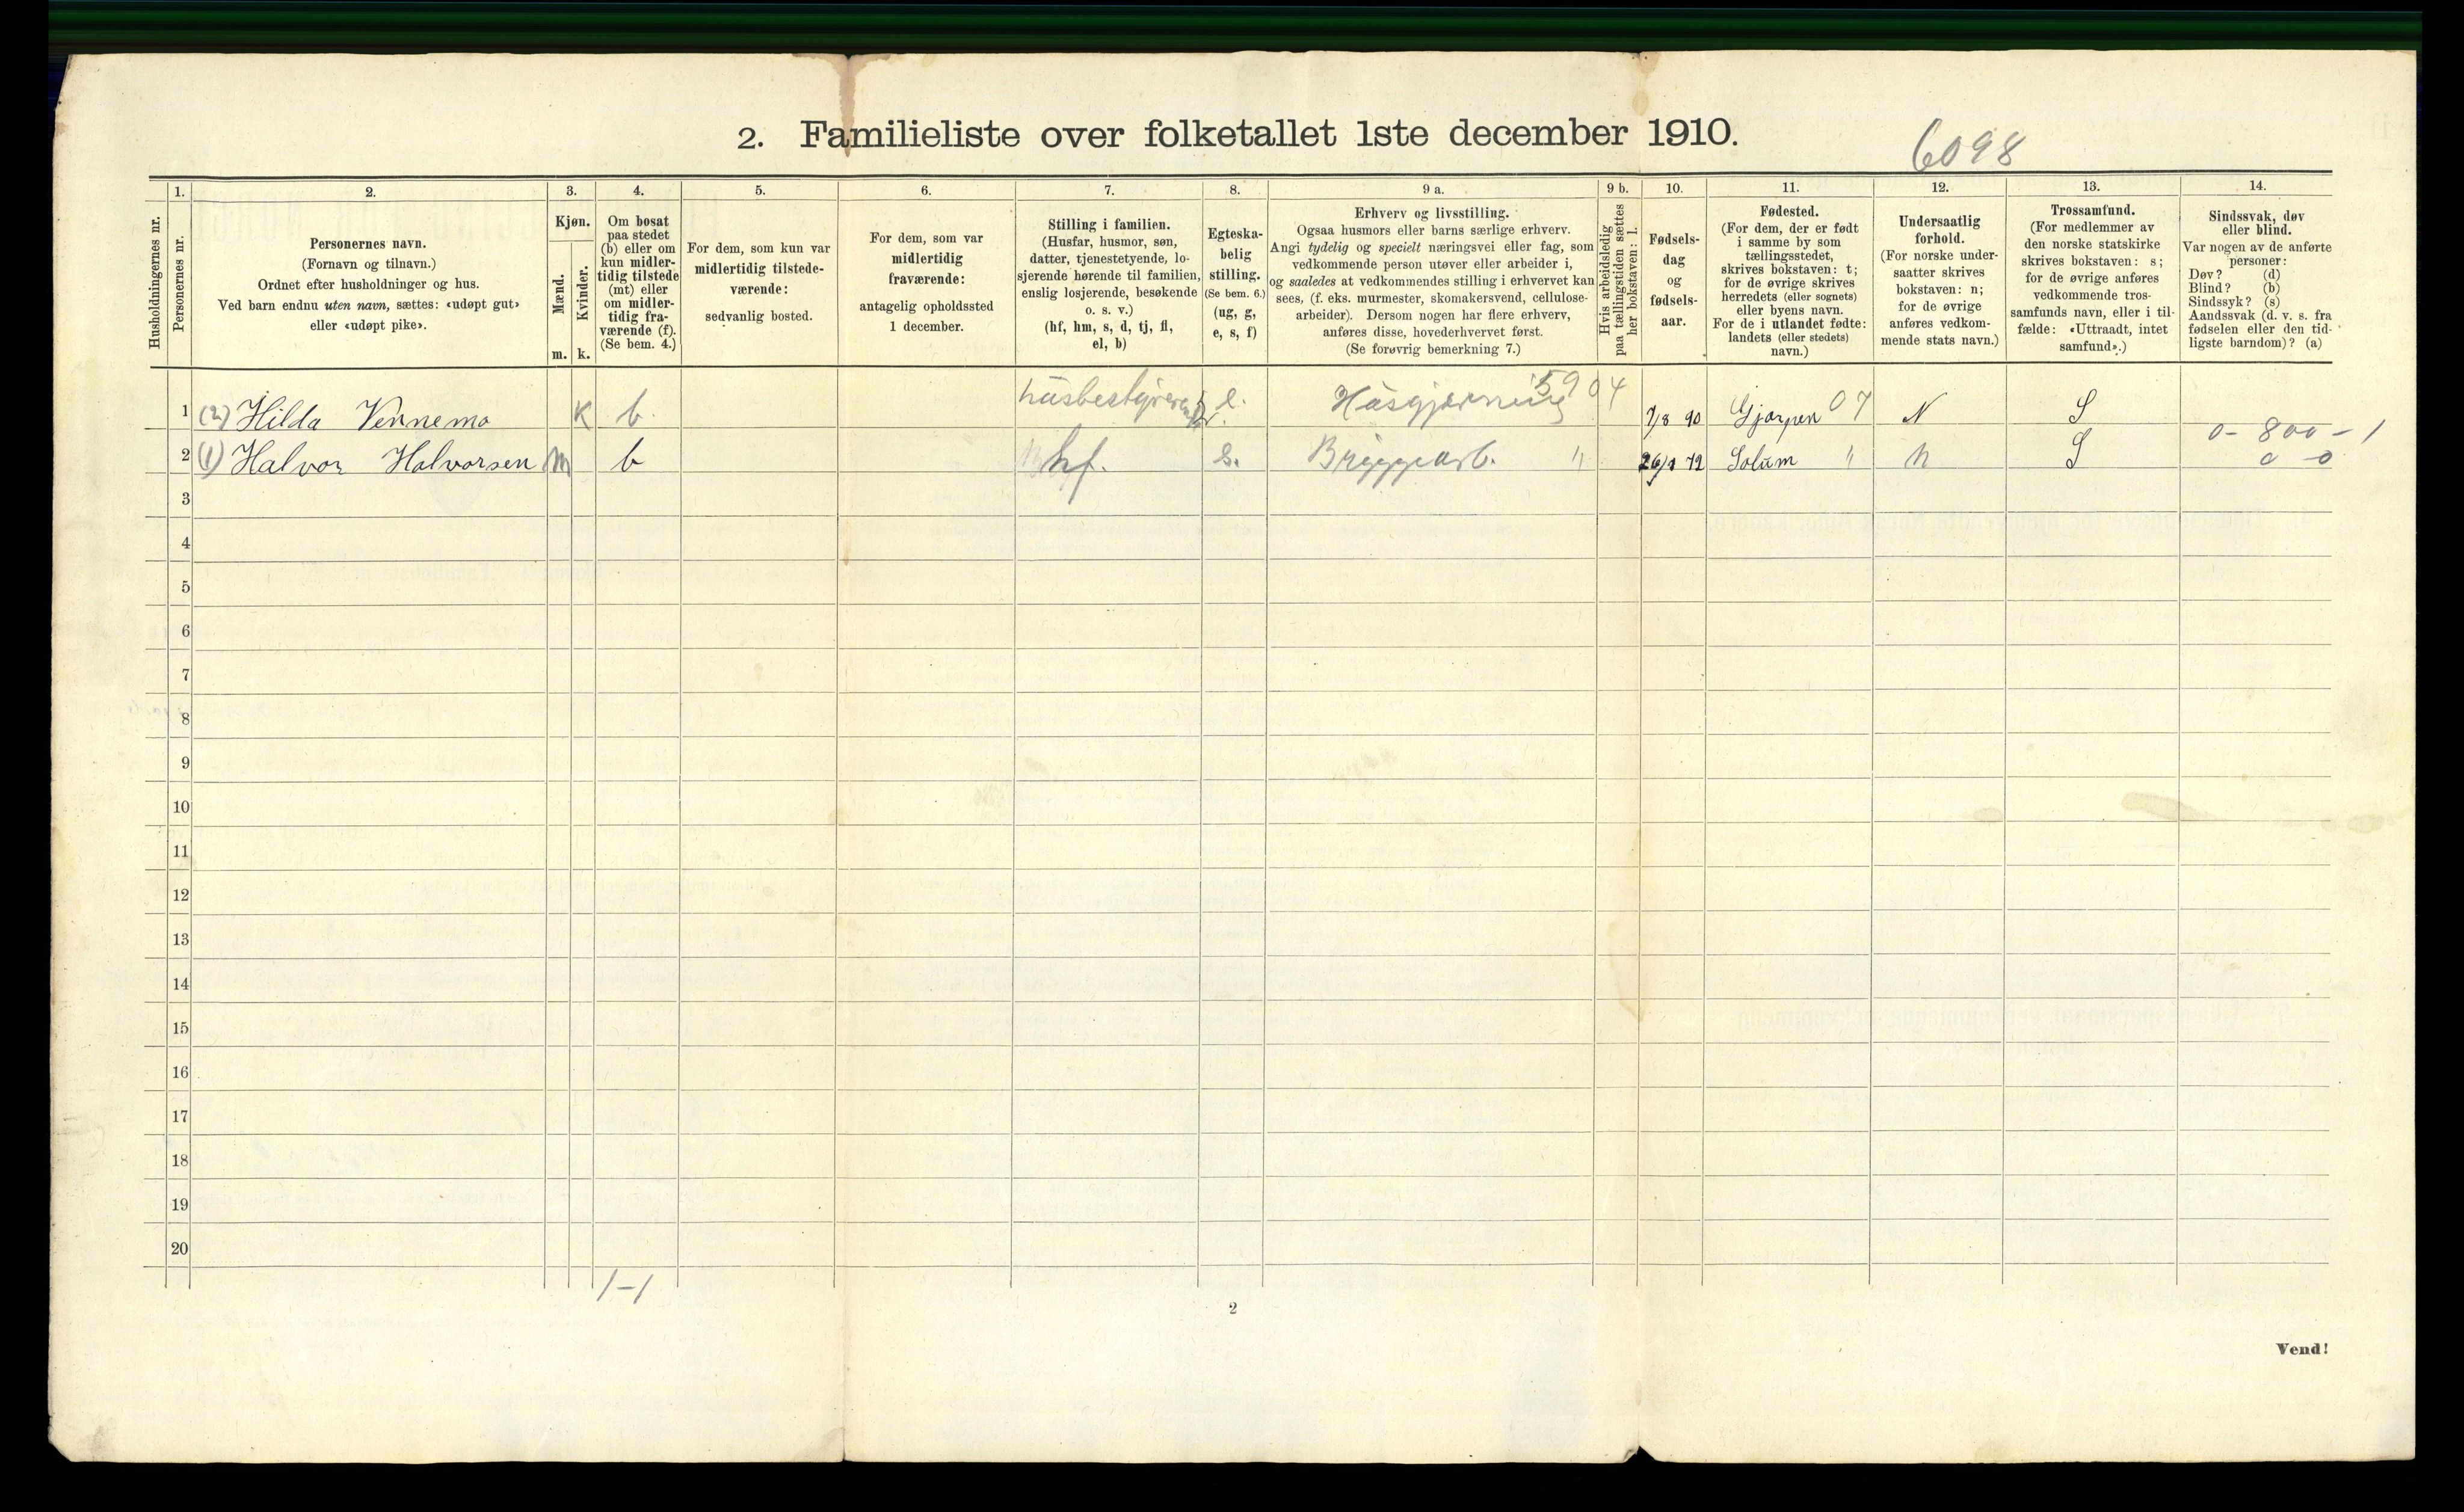 2. Familieliste over folketallet 1ste december 1910.
6098
1. 2. 3. 4. 5. 6. 7. 8. 9 a. 9 b. 10. 11. 12. 13. 14.
Husholdningernes nr.
Personernes nr.
Personernes navn.
(Fornavn og tilnavn.)
Ordnet efter husholdninger og hus.
Ved barn endnu uten navn, sættes: «udøpt gut»
eller «udøpt pike».
Kjøn.
Mænd.
Kvinder.
m. k.
Om bosat
paa stedet
(b) eller om
kun midler-
tidig tilstede
(mt) eller
om midler-
tidig fra-
værende (f).
(Se bem. 4.)
For dem, som kun var
midlertidig tilstede-
værende:
sedvanlig bosted.
For dem, som var
midlertidig
fraværende:
antagelig opholdssted
1 december.
Stilling i familien.
(Husfar, husmor, søn,
datter, tjenestetyende, lo-
sjerende hørende til familien,
enslig losjerende, besøkende
o. s. v.)
(hf, hm, s, d, tj, fl,
el, b)
Egteska-
belig
stilling.
(Se bem. 6.)
(ug, g,
e, s, f)
Erhverv og livsstilling.
Ogsaa husmors eller barns særlige erhverv.
Angi tydelig og specielt næringsvei eller fag, som
vedkommende person utøver eller arbeider i,
og saaledes at vedkommendes stilling i erhvervet kan
sees, (f. eks. murmester, skomakersvend, cellulose-
arbeider). Dersom nogen har flere erhverv,
anføres disse, hovederhvervet først.
(Se forøvrig bemerkning 7.)
Hvis arbeidsledig
paa tællingstiden sættes
her bokstaven: l.
Fødsels-
dag
og
fødsels-
aar.
Fødested.
(For dem, der er født
i samme by som
tællingsstedet,
skrives bokstaven: t;
for de øvrige skrives
herredets (eller sognets)
eller byens navn.
For de i utlandet fødte:
landets (eller stedets)
navn.)
Undersaatlig
forhold.
(For norske under-
saatter skrives
bokstaven: n;
for de øvrige
anføres vedkom-
mende stats navn.)
Trossamfund.
(For medlemmer av
den norske statskirke
skrives bokstaven: s;
for de øvrige anføres
vedkommende tros-
samfunds navn, eller i til-
fælde: «Uttraadt, intet
samfund».)
Sindssvak, døv
eller blind.
Var nogen av de anførte
personer:
Døv? (d)
Blind? (b)
Sindssyk? (s)
Aandssvak (d. v. s. fra
fødselen eller den tid-
ligste barndom)? (a)
1 (2) Hilda Vennemo K b. e. Husgjerning 5904 7/8 90 Gjerpen 07 N S
0 - 800 - 1
2 (1) Halvor Halvorsen m b hf. Bryggearb. " 26/1 72 Solum " n S 0 0
3
4
5
6
7
8
9
10
11
12
13
14
15
16
17
18
19
20
1-1
2
Vend!